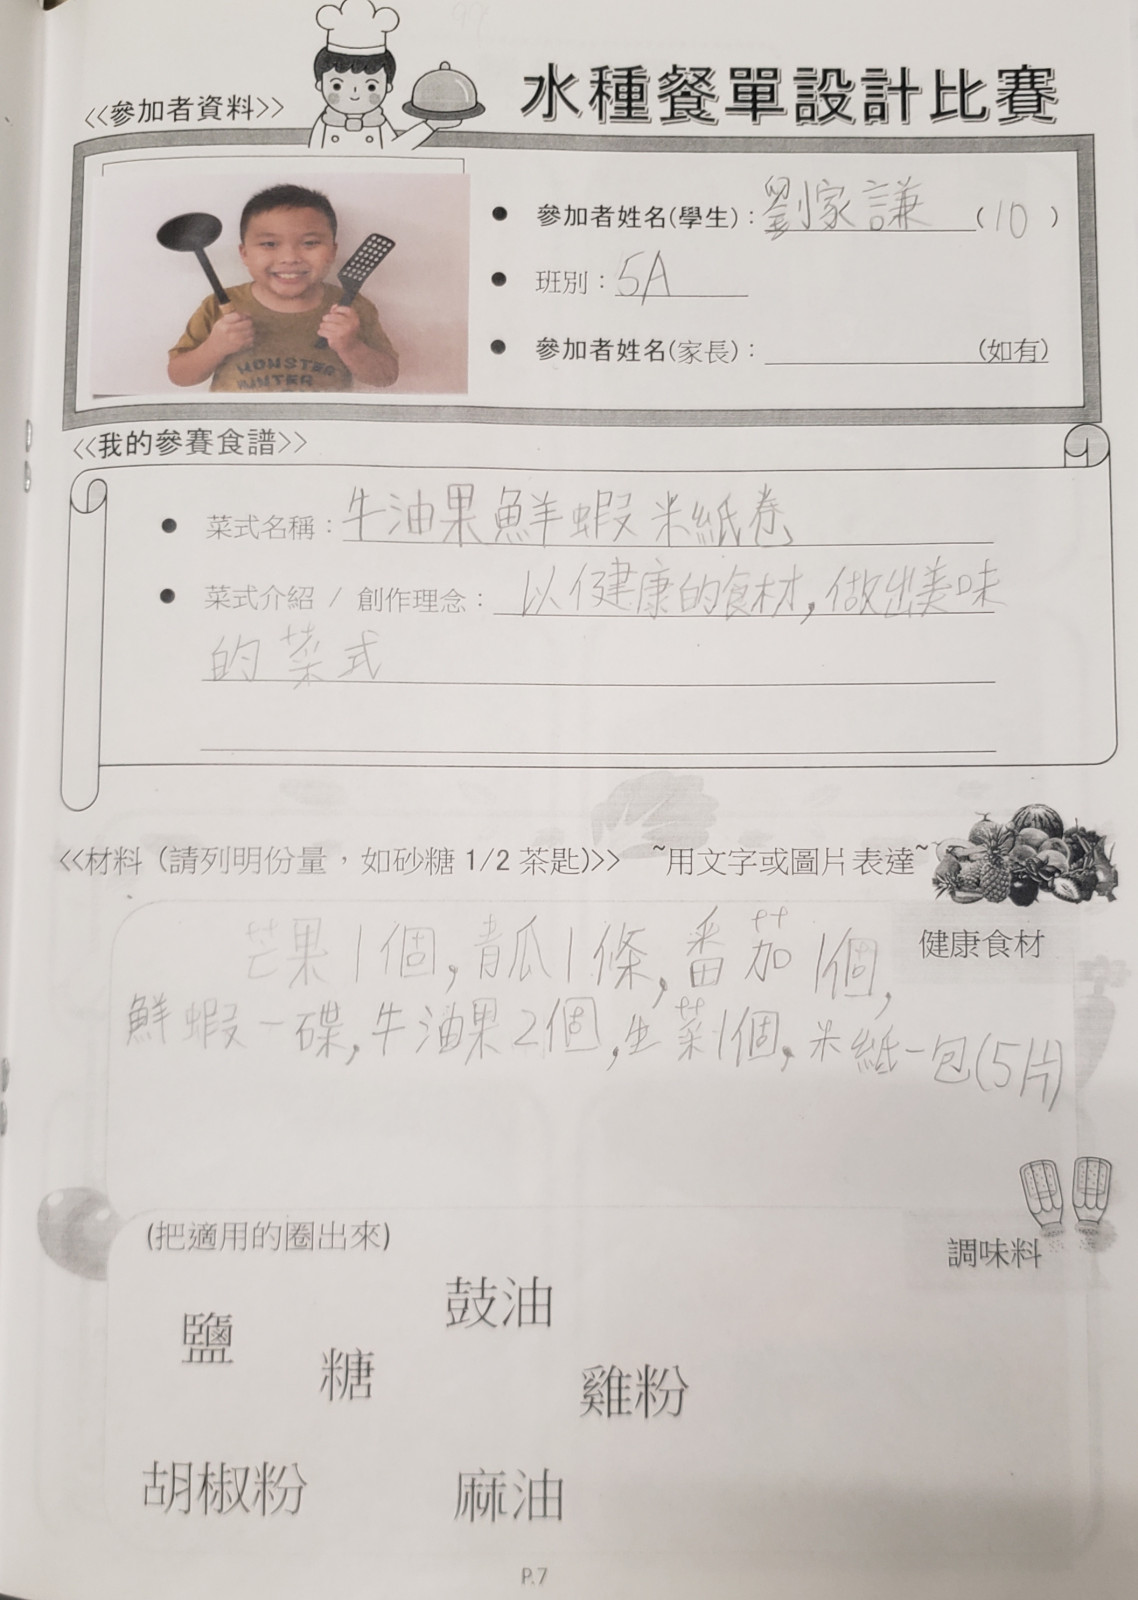 水種餐單設計比賽
<<參加者資料>>
MONSTER
HUNTER
● 參加者姓名(學生)：劉家謙 (10)
● 班別：5A
● 參加者姓名(家長)： (如有)
<<我的參賽食譜>>
● 菜式名稱：牛油果鮮蝦米紙卷
● 菜式介紹 / 創作理念：以健康的食材,做出美味
的菜式
<<材料 (請列明份量，如砂糖 1/2 茶匙)>> ~用文字或圖片表達~
健康食材
芒果1個,青瓜1條,番茄1個,
鮮蝦一碟,牛油果2個,生菜1個,米紙一包(5片)
(把適用的圈出來)
調味料
鹽
糖
鼓油
雞粉
胡椒粉
麻油
P.7